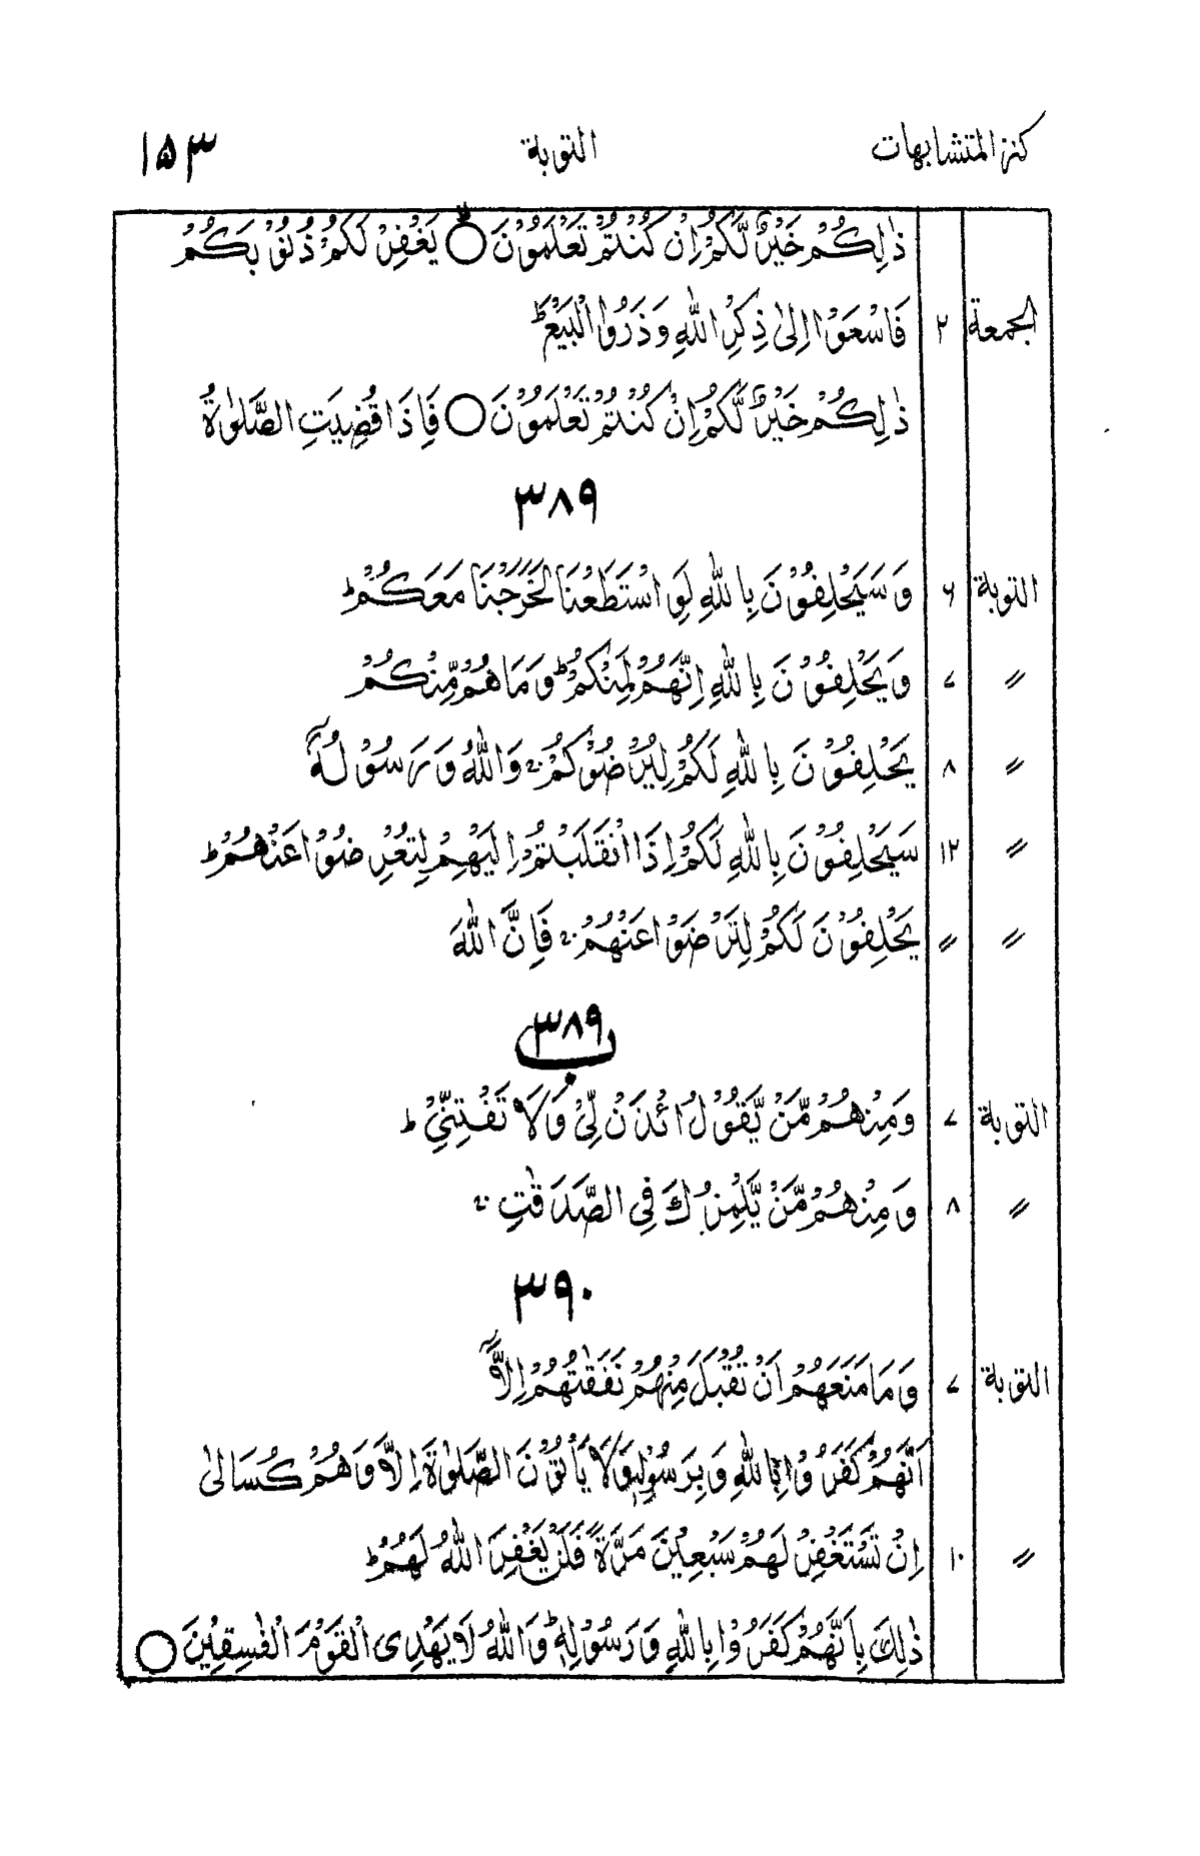 كنز المتشابهات التوبة ١٥٣
ذٰلِكُمْ خَيْرٌ لَّكُمْ اِنْ كُنْتُمْ تَعْلَمُوْنَ ○ يَغْفِرْ لَكُمْ ذُنُوْبَكُمْ
الجمعة ٢ فَاسْعَوْا اِلىٰ ذِكْرِ اللّٰهِ وَذَرُوا الْبَيْعَ ؕ
ذٰلِكُمْ خَيْرٌ لَّكُمْ اِنْ كُنْتُمْ تَعْلَمُوْنَ ○ فَاِذَا قُضِيَتِ الصَّلٰوةُ
٣٨٩
التوبة ۶ وَسَيَحْلِفُوْنَ بِاللّٰهِ لَوِ اسْتَطَعْنَا لَخَرَجْنَا مَعَكُمْ ؕ
〃 ۷ وَيَحْلِفُوْنَ بِاللّٰهِ اِنَّهُمْ لَمِنْكُمْ ؕ وَمَا هُمْ مِّنْكُمْ
〃 ٨ يَحْلِفُوْنَ بِاللّٰهِ لَكُمْ لِيُرْضُوْكُمْ ۚ وَاللّٰهُ وَرَسُوْلُهٗۤ
〃 ١٢ سَيَحْلِفُوْنَ بِاللّٰهِ لَكُمْ اِذَا انْقَلَبْتُمْ اِلَيْهِمْ لِتُعْرِضُوْا عَنْهُمْ ؕ
〃 〃 يَحْلِفُوْنَ لَكُمْ لِتَرْضَوْا عَنْهُمْ ۚ فَاِنَّ اللّٰهَ
٣٨٩ ب
التوبة ۷ وَمِنْهُمْ مَّنْ يَّقُوْلُ ائْذَنْ لِّيْ وَلَا تَفْتِنِّيْ ؕ
〃 ٨ وَمِنْهُمْ مَّنْ يَّلْمِزُكَ فِي الصَّدَقٰتِ ۚ
٣٩٠
التوبة ۷ وَمَا مَنَعَهُمْ اَنْ تُقْبَلَ مِنْهُمْ نَفَقٰتُهُمْ اِلَّاۤ
اَنَّهُمْ كَفَرُوْا بِاللّٰهِ وَبِرَسُوْلِهٖ وَلَا يَأْتُوْنَ الصَّلٰوةَ اِلَّا وَهُمْ كُسَالىٰ
〃 ١٠ اِنْ تَسْتَغْفِرْ لَهُمْ سَبْعِيْنَ مَرَّةً فَلَنْ يَّغْفِرَ اللّٰهُ لَهُمْ ؕ
ذٰلِكَ بِاَنَّهُمْ كَفَرُوْا بِاللّٰهِ وَرَسُوْلِهٖ ؕ وَاللّٰهُ لَا يَهْدِى الْقَوْمَ الْفٰسِقِيْنَ ○